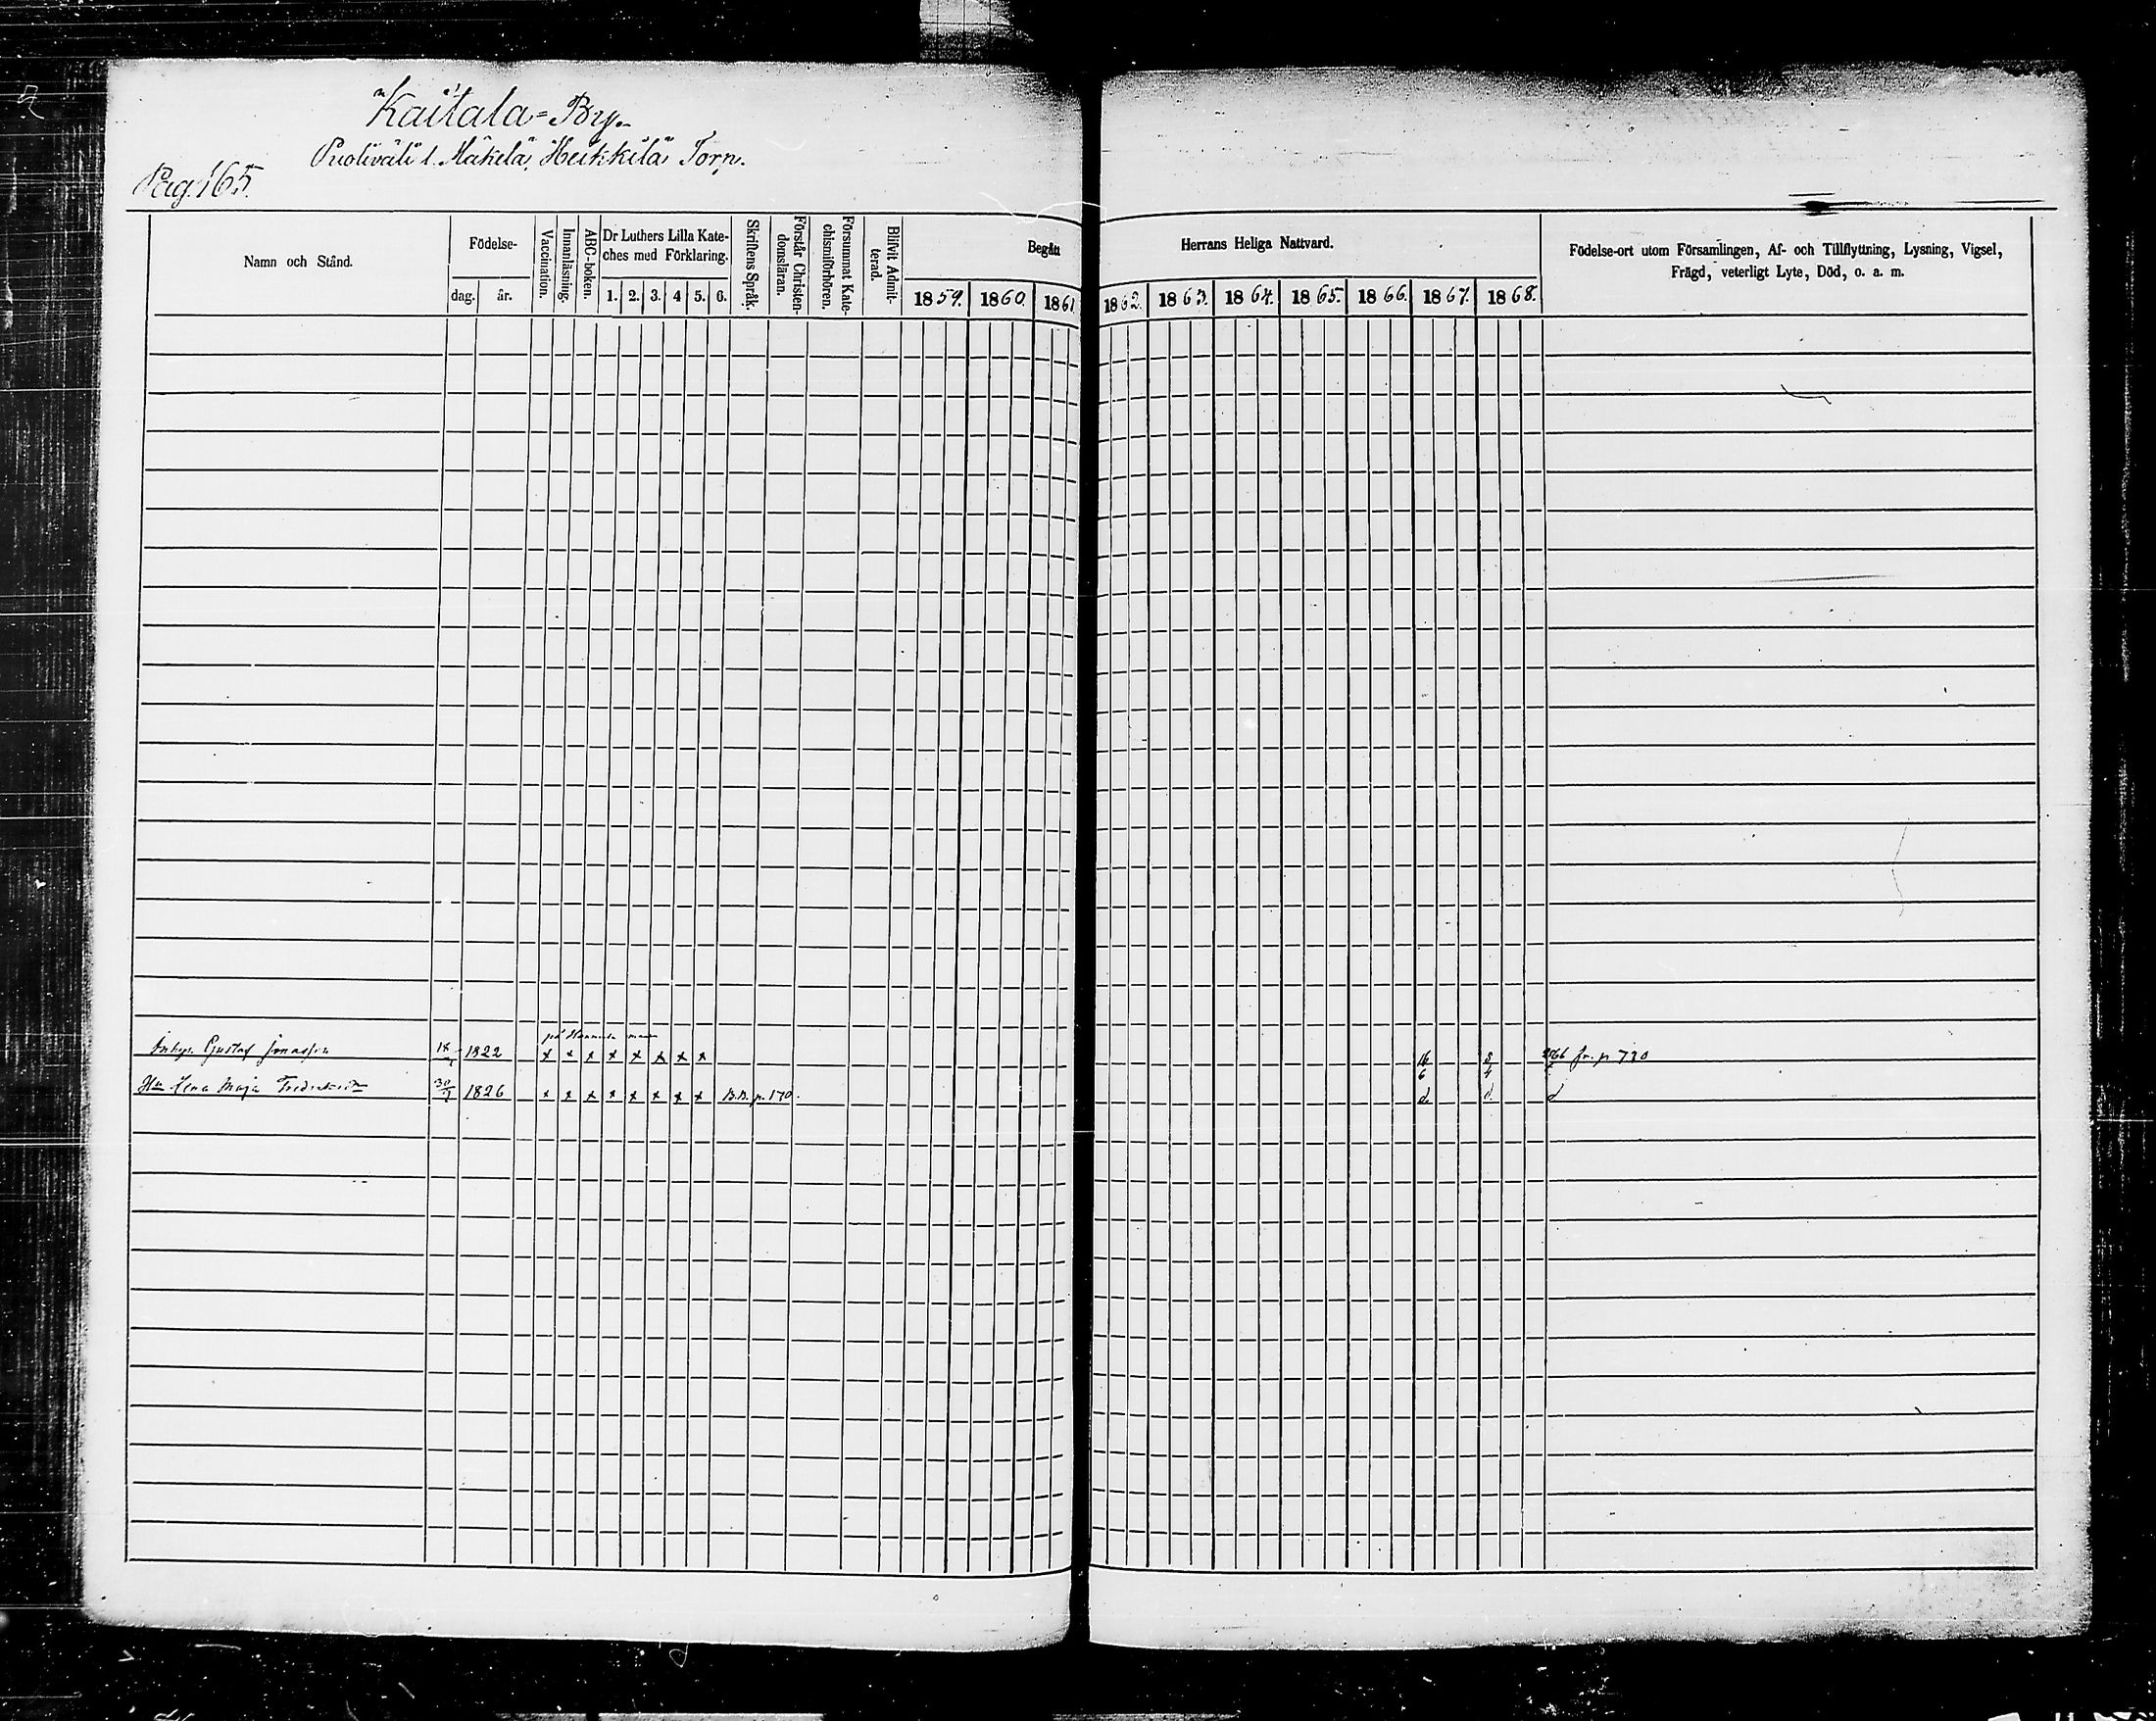 Kaitala-By.
Puoliväli l. Mäkelä, Heikkilä Torp.
Pag. 165.
Namn och Stånd.
Födelse-
dag.
år.
Vaccination.
Innanläsning.
ABC-boken.
Dr Luthers Lilla Kate-
ches med Förklaring.
1. 2. 3. 4 5. 6.
Skriftens Språk.
Förstår Christen-
domsläran.
Försummat Kate-
chismiförhören.
Blifvit Admit-
terad.
Begått Herrans Heliga Nattvard.
1859. 1860. 1861. 1862. 1863. 1864. 1865. 1866. 1867. 1868.
Födelse-ort utom Församlingen, Af- och Tillflyttning, Lysning, Vigsel,
Frägd, veterligt Lyte, Död, o. a. m.
Gustaf Jonasson 1822 x x x x x x x x 16/6 fr. p 720
Hu Lena Maja 30/7 1826 x x x x x x x x B.B. p. 170. d d d